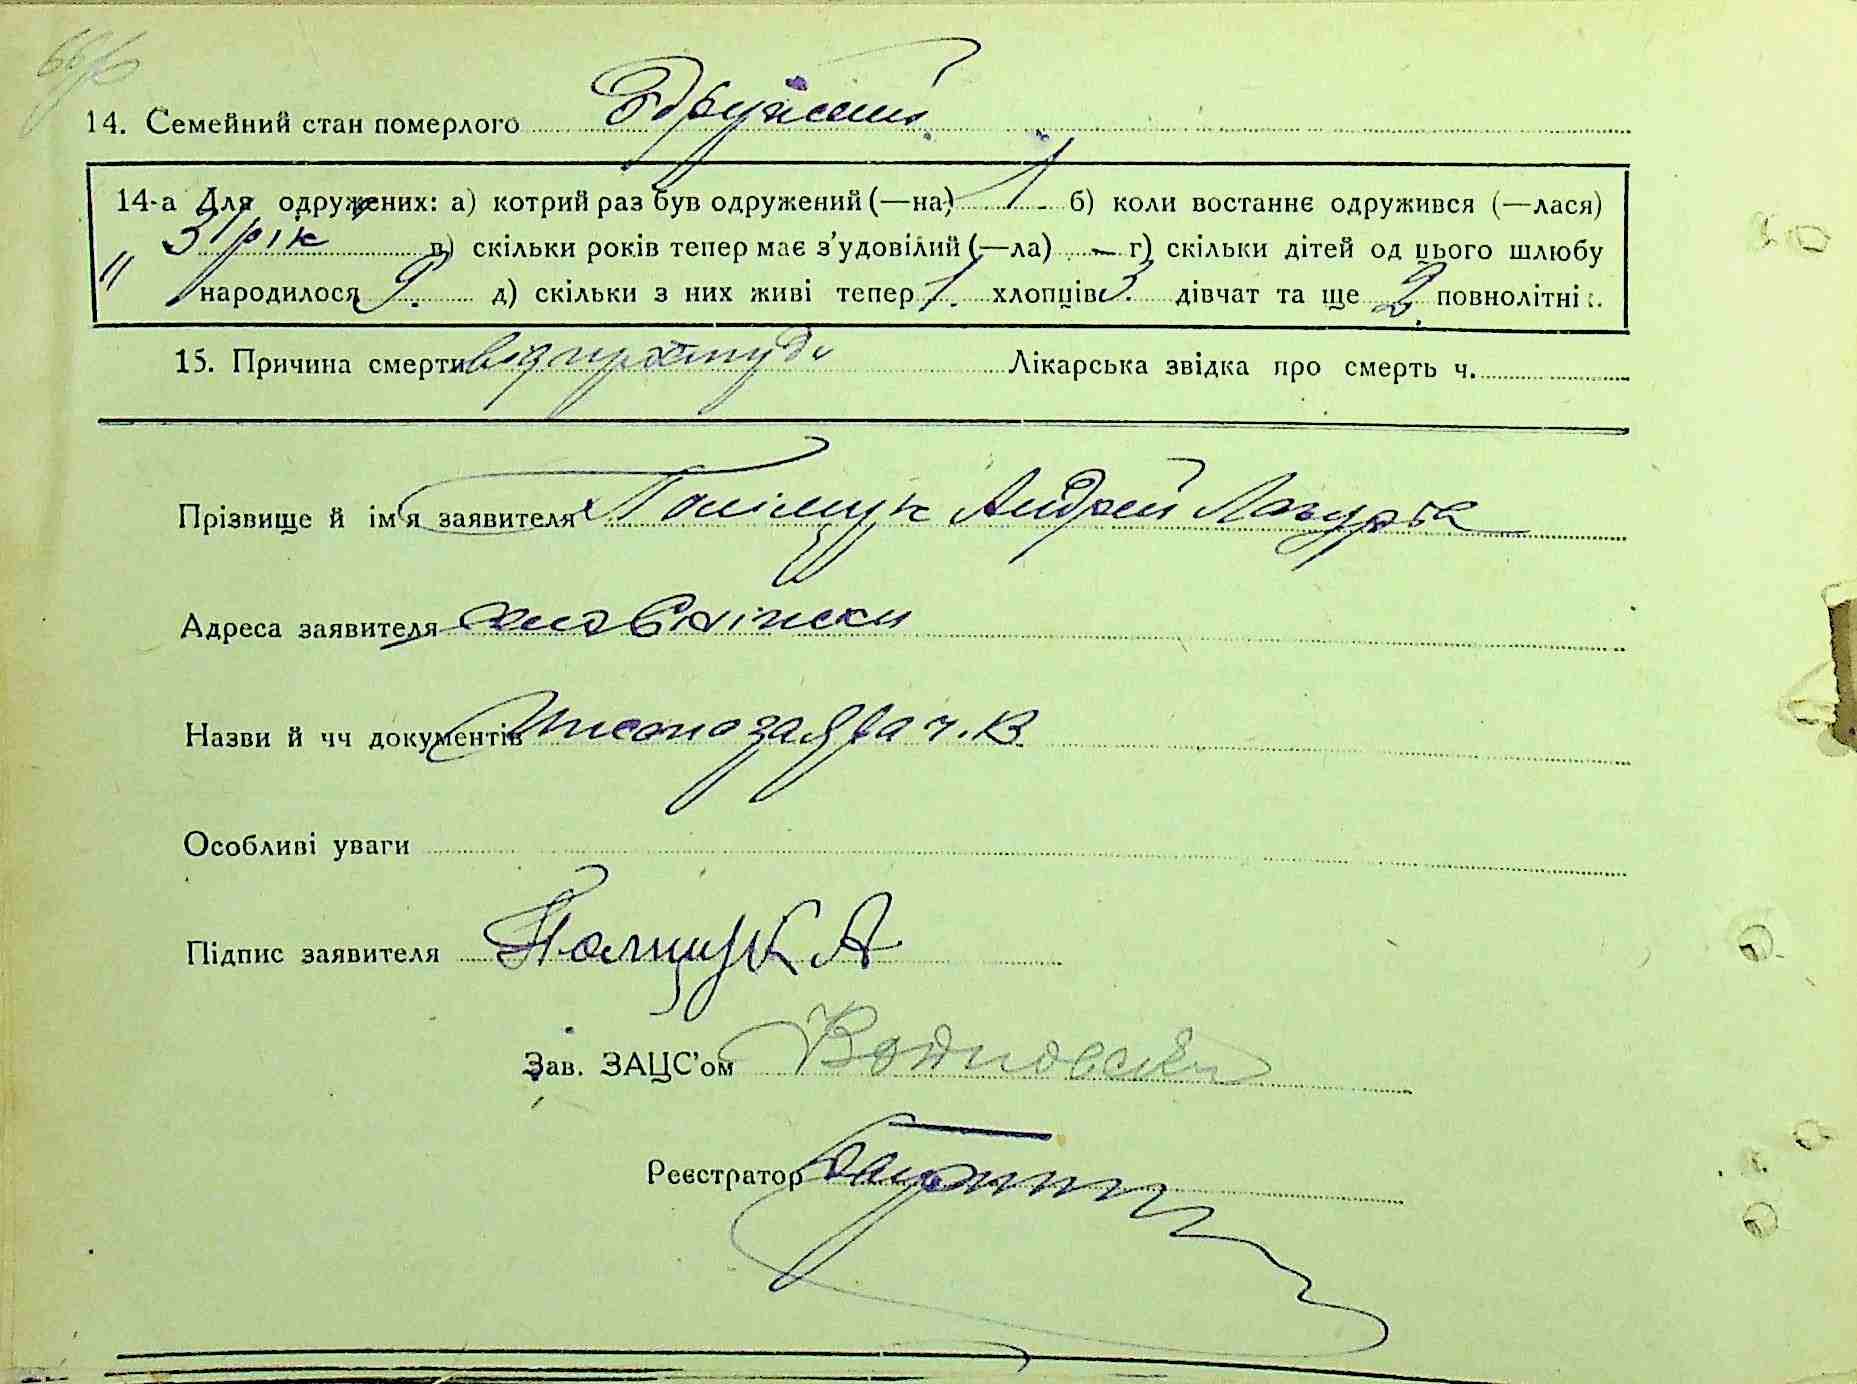 14. Семейний стан померлого Одружений
14-а Для одружених: а) котрий раз був одружений (—на) 1 б) коли востаннє одружився (—лася)
31 рік в) скільки років тепер має з'удовілий (—ла) — г) скільки дітей од цього шлюбу
" народилося 9. д) скільки з них живі тепер 1. хлопців 3. дівчат та ще 2. повнолітні:.
15. Причина смерти від Лікарська звідка про смерть ч.
Прізвище й ім'я заявителя Поліщук Андрей
Адреса заявителя
Назви й чч документів заява ч. В.
Особливі уваги
Підпис заявителя Полщук А
Зав. ЗАЦС'ом
Реєстратор